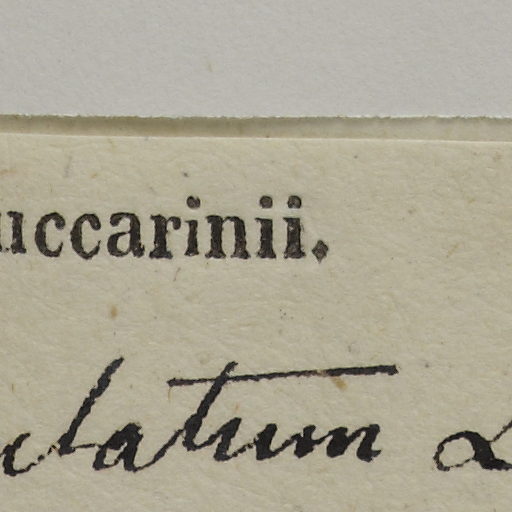 uccarinii.
latum L